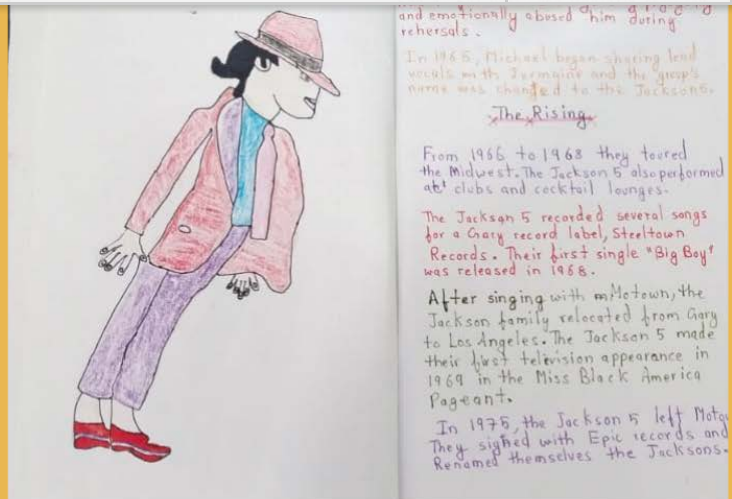 and emotionally abused him during
rehersals.
In 1965, Michael began sharing lead
vocals with Jermaine and the group's
name was changed to the Jackson 5.
The Rising
From 1966 to 1968 they toured
the Midwest. The Jackson 5 also performed
at clubs and cocktail lounges.
The Jackson 5 recorded several songs
for a Gary record label, Steeltown
Records. Their first single "Big Boy"
was released in 1968.
After singing with Motown, the
Jackson family relocated from Gary
to Los Angeles. The Jackson 5 made
their first television appearance in
1969 in the Miss Black America
Pageant.
In 1975, the Jackson 5 left
They signed with Epic records and
Renamed themselves the Jacksons.